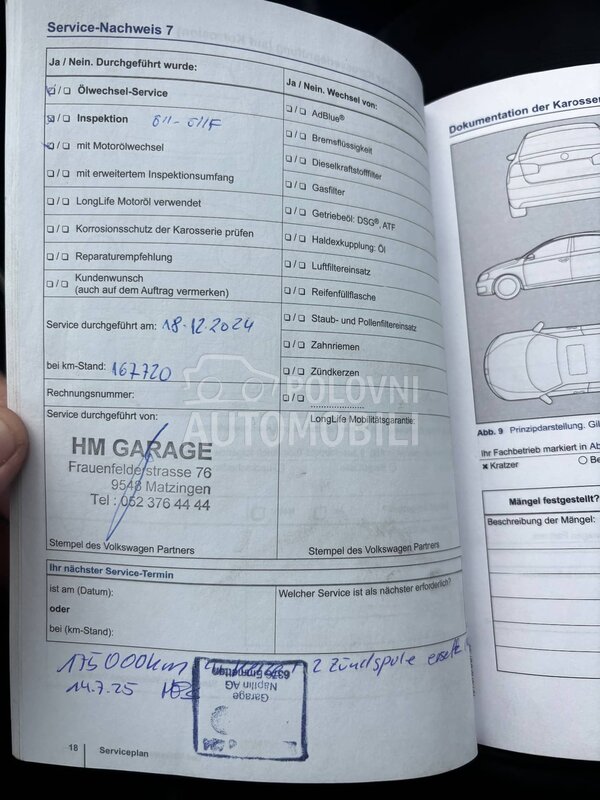 Service-Nachweis 7
Ja / Nein. Durchgeführt wurde:
Ölwechsel-Service
Inspektion
mit Motorölwechsel
mit erweitertem Inspektionsumfang
LongLife Motoröl verwendet
Korrosionsschutz der Karosserie prüfen
Reparaturempfehlung
Kundenwunsch
(auch auf dem Auftrag vermerken)
Service durchgeführt am: 18.12.2024
bei km-Stand: 167720
Rechnungsnummer:
Service durchgeführt von:
HM GARAGE
Frauenfelderstrasse 76
9548 Matzingen
Tel : 052 376 44 44
Stempel des Volkswagen Partners
Ja / Nein. Wechsel von:
AdBlue®
Bremsflüssigkeit
Dieselkraftstofffilter
Gasfilter
Getriebeöl: DSG®, ATF
Haldexkupplung: Öl
Luftfiltereinsatz
Reifenfüllflasche
Staub- und Pollenfiltereinsatz
Zahnriemen
Zündkerzen
LongLife Mobilitätsgarantie:
Stempel des Volkswagen Partners
POLOVNI
AUTOMOBILI
Ihr nächster Service-Termin
ist am (Datum):
oder
bei (km-Stand):
Welcher Service ist als nächster erforderlich?
175000km 2 Zündspule
14.7.25
Garage
Näpflin AG
18 Serviceplan
Dokumentation der Karosse
Abb. 9 Prinzipdarstellung.
Ihr Fachbetrieb markiert in
Kratzer
Mängel festgestellt?
Beschreibung der Mängel: